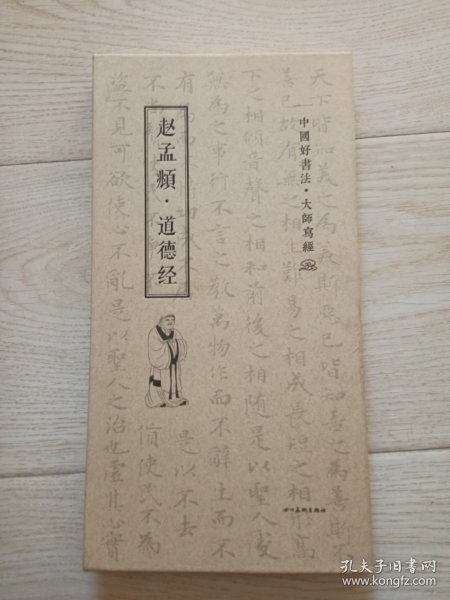 中國好書法·大師寫經
赵孟頫·道德经
天下皆知美之為美斯惡已皆知善之為善斯不
善已故有無之相生難易之相成長短之相
下之相傾音聲之相和前後之相隨是以聖人處
無為之事行不言之教萬物作而不辭生而不
是以不去
盜不見可欲使心不亂是以聖人之治也虛其心實
四川美術出版社
孔夫子旧书网
www.kongfz.com